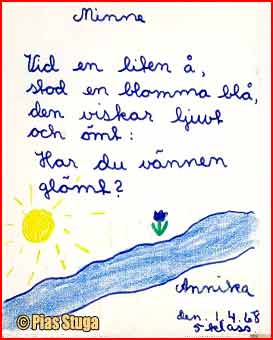 Minne
Vid en liten å,
stod en blomma blå,
den viskar ljuvt
och ömt:
Har du vännen
glömt?
Annika
den. 1.4.68
5 klass.
© Pias Stuga